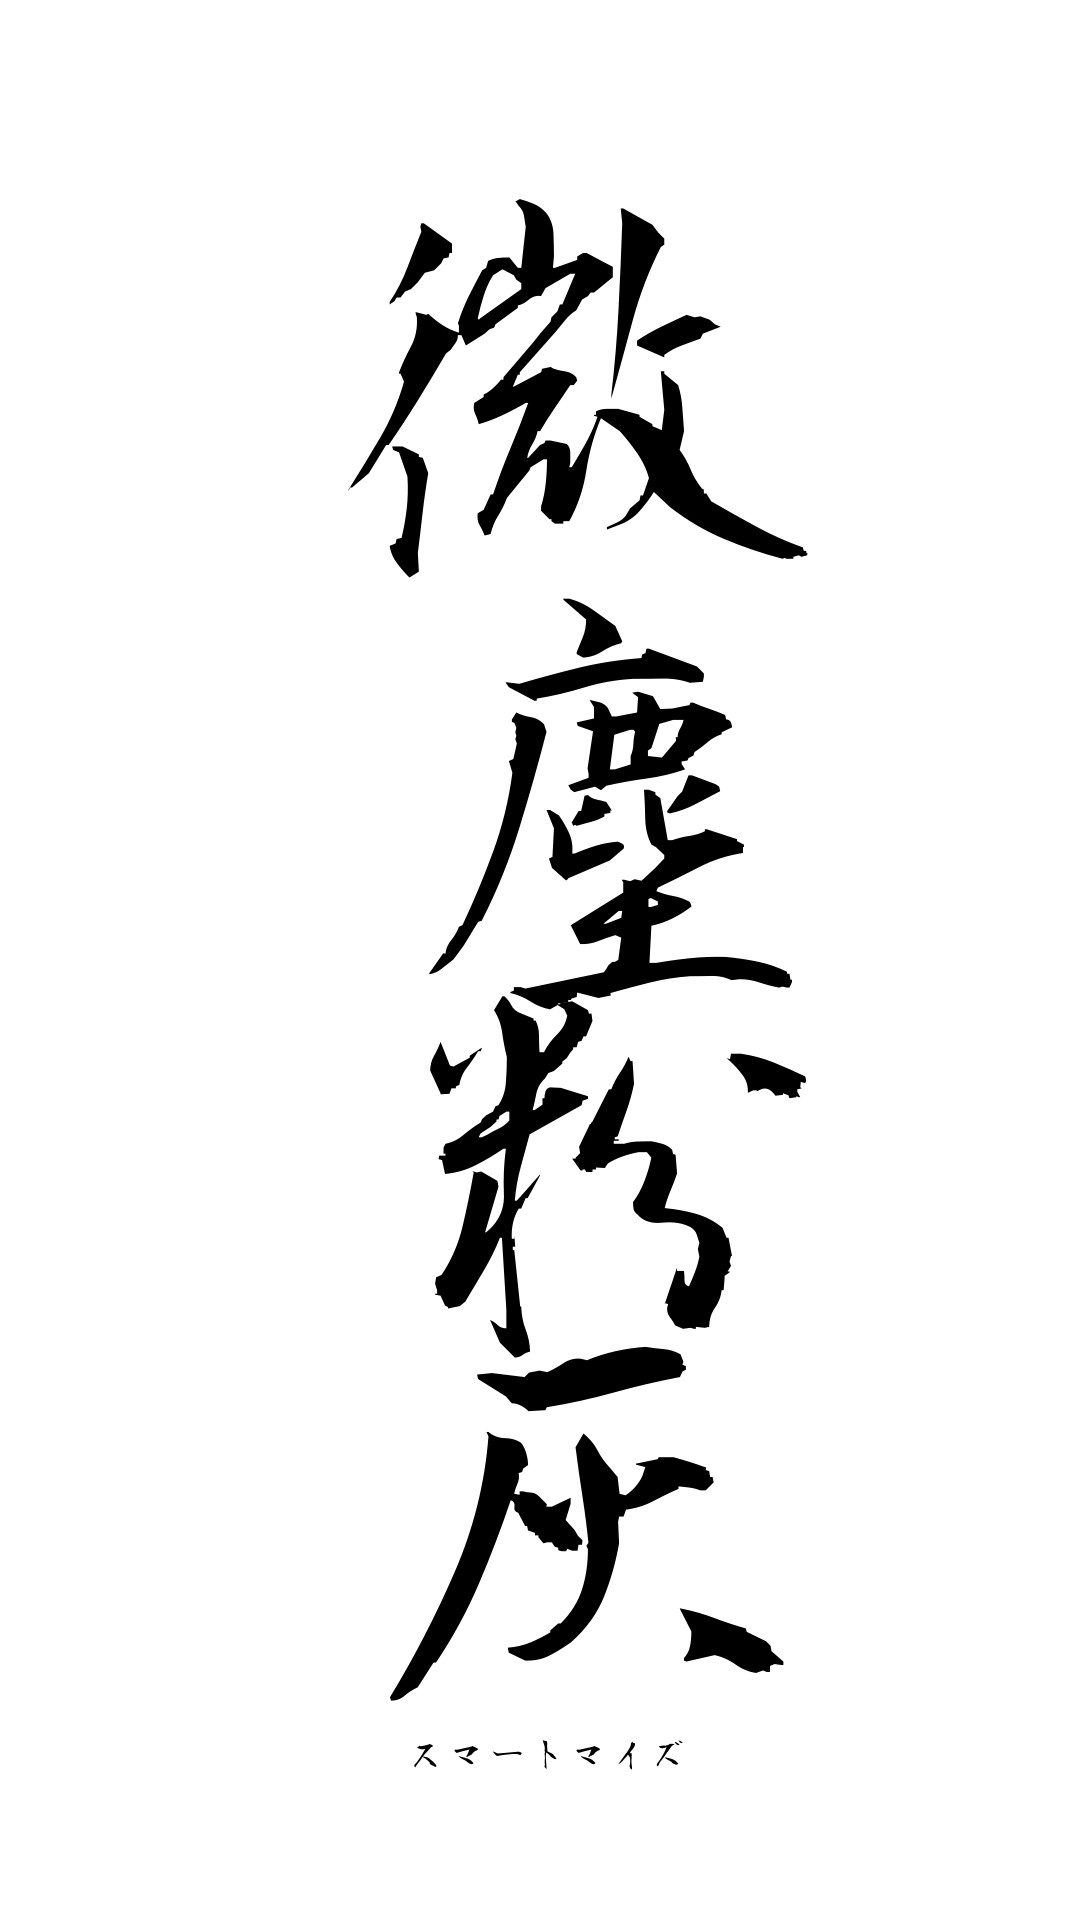 微塵粉灰
スマートマイズ